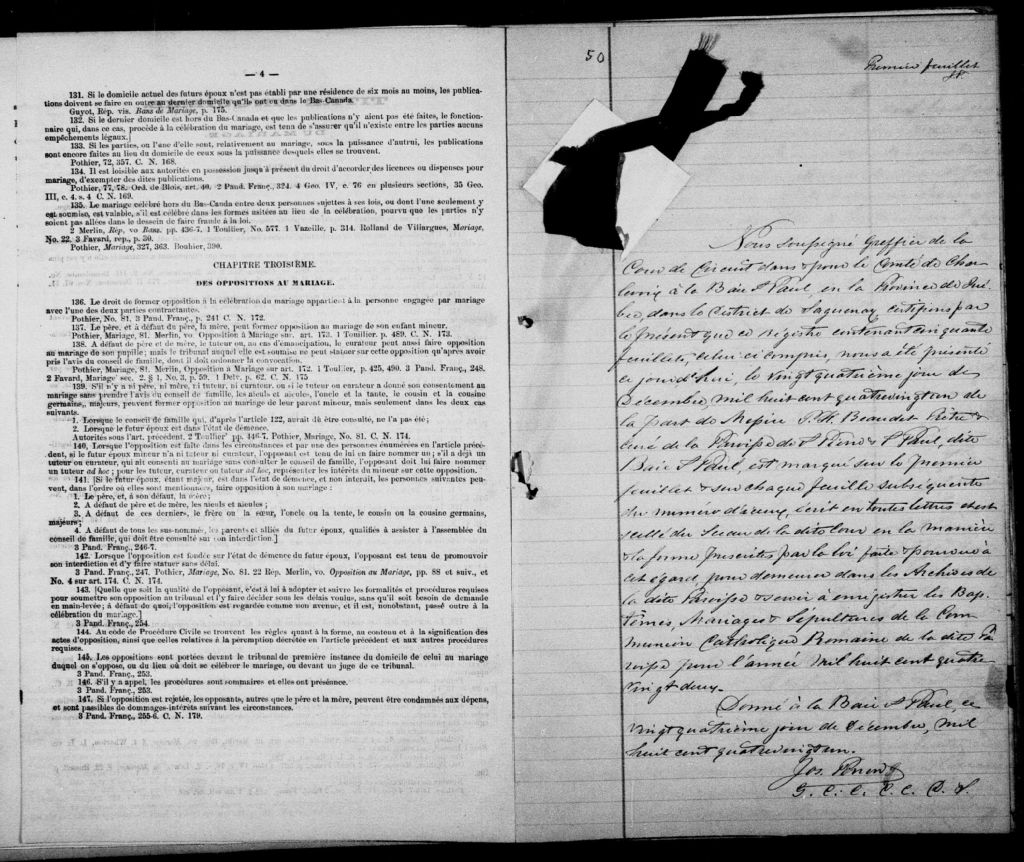 — 4 —
131. Si le domicile actuel des futurs époux n'est pas établi par une résidence de six mois au moins, les publica-
tions doivent se faire en outre au dernier domicile qu'ils ont eu dans le Bas-Canada.
Guyot, Rép. vis. Bans de Mariage, p. 175.
132. Si le dernier domicile est hors du Bas-Canada et que les publications n'y aient pas été faites, le fonction-
naire qui, dans ce cas, procède à la célébration du mariage, est tenu de s'assurer qu'il n'existe entre les parties aucuns
empêchements légaux.]
133. Si les parties, ou l'une d'elle sont, relativement au mariage, sous la puissance d'autrui, les publications
sont encore faites au lieu du domicile de ceux sous la puissance desquels elles se trouvent.
Pothier, 72, 357. C. N. 168.
134. Il est loisible aux autorités en possession jusqu'à présent du droit d'accorder des licences ou dispenses pour
mariage, d'exempter des dites publications.
Pothier, 77, 78. Ord. de Blois, art. 40. 2 Pand. Franç., 324. 4 Geo. IV, c. 76 en plusieurs sections, 35 Geo.
III, c. 4. s. 4 C. N. 169.
135. Le mariage célébré hors du Bas-Canda entre deux personnes sujettes à ses lois, ou dont l'une seulement y
est soumise, est valable, s'il est célébré dans les formes usitées au lieu de la célébration, pourvu que les parties n'y
soient pas allées dans le dessein de faire fraude à la loi.
2 Merlin, Rép, vo Bans. pp. 436-7. 1 Toullier, No. 577. 1 Vazeille. p. 314. Rolland de Villargues, Mariage,
No. 22. 3 Favard, rep., p. 30.
Pothier, Mariage, 327, 363. Bouhier, 390.
CHAPITRE TROISIÈME.
DES OPPOSITIONS AU MARIAGE.
136. Le droit de former opposition à la célébration du mariage appartient à la personne engagée par mariage
avec l'une des deux parties contractantes.
Pothier, No. 81. 3 Pand. Franç., p. 241 C. N. 172.
137. Le père, et à défaut du père, la mère, peut former opposition au mariage de son enfant mineur.
Pothier, Mariage, 81. Merlin, vo Opposition à Mariage, sur. art. 173. 1 Toullier. p. 489. C. N. 173.
138. A défaut de père et de mère, le tuteur ou, au cas d'émancipation, le curateur peut aussi faire opposition
au mariage de son pupille; mais le tribunal auquel elle est soumise ne peut statuer sur cette opposition qu'après avoir
pris l'avis du conseil de famille, dont il doit ordonner la convocation.
Pothier, Mariage, 81. Merlin, Opposition à Mariage sur art. 172. 1 Toullier, p. 425, 490. 3 Pand. Franç., 248.
2 Favard, Mariage sec. 2. § 1, No. 3, p. 59. 1 Delv. p. 62. C. N. 175
139. S'il n'y a ni père, ni mère, ni tuteur, ni curateur, ou si le tuteur ou curateur a donné son consentement au
mariage sans prendre l'avis du conseil de famille, les aïeuls et aïeules, l'oncle et la tante, le cousin et la cousine
germains, majeurs, peuvent former opposition au mariage de leur parent mineur, mais seulement dans les deux cas
suivants.
1. Lorsque le conseil de famille qui, d'après l'article 122, aurait dû être consulté, ne l'a pas été;
2. Lorsque le futur époux est dans l'état de démence.
Autorités sous l'art. précédent. 2 Toullier pp. 446-7. Pothier, Mariage, No. 81. C. N. 174.
140. Lorsque l'opposition est faite dans les circonstances et par une des personnes énumérées en l'article précé-
dent, si le futur époux mineur n'a ni tuteur ni curateur, l'opposant est tenu de lui en faire nommer un; s'il a déjà un
tuteur ou curateur, qui ait consenti au mariage sans consulter le conseil de famille, l'opposant doit lui faire nommer
un tuteur ad hoc; pour les tuteur, curateur ou tuteur ad hoc, représenter les intérêts du mineur sur cette opposition.
141. [Si le futur époux, étant majeur, est dans l'état de démence, et non interdit, les personnes suivantes peu-
vent, dans l'ordre où elles sont mentionnées, faire opposition à son mariage:
1. Le père, et, à son défaut, la mère;
2. A défaut de père et de mère, les aïeuls et aïeules;
3. A défaut de ces derniers, le frère ou la sœur, l'oncle ou la tente, le cousin ou la cousine germains,
majeurs;
4. A défaut de tous les sus-nommés, les parents et alliés du futur époux, qualifiés à assister à l'assemblée du
conseil de famille, qui doit être consulté sur son interdiction.]
3 Pand. Franç., 246-7.
142. Lorsque l'opposition est fondée sur l'état de démence du futur époux, l'opposant est tenu de promouvoir
son interdiction et d'y faire statuer sans délai.
3 Pand. Franç., 247. Pothier, Mariage, No. 81. 22 Rép. Merlin, vo. Opposition au Mariage, pp. 88 et suiv., et
No. 4 sur art. 174. C. N. 174.
143. [Quelle que soit la qualité de l'opposant, c'est à lui à adopter et suivre les formalités et procédures requises
pour soumettre son opposition au tribunal et l'y faire décider sous les délais voulus, sans qu'il soit besoin de demande
en main-levée; à défaut de quoi, l'opposition est regardée comme non avenue, et il est, nonobstant, passé outre à la
célébration du mariage.]
3 Pand. Franç., 254.
144. Au code de Procédure Civile se trouvent les règles quant à la forme, au contenu et à la signification des
actes d'opposition, ainsi que celles relatives à la péremption décrétée en l'article précédent et aux autres procédures
requises.
145. Les oppositions sont portées devant le tribunal de première instance du domicile de celui au mariage
duquel on s'oppose, ou du lieu où doit se célébrer le mariage, ou devant un juge de ce tribunal.
3 Pand. Franç., 253.
146. S'il y a appel, les procédures sont sommaires et elles ont préséance.
3 Pand. Franç., 253.
147. Si l'opposition est rejetée, les opposants, autres que le père et la mère, peuvent être condamnés aux dépens,
et sont passibles de dommages-intérêts suivant les circonstances.
3 Pand. Franç., 255-6. C. N. 179.
50
Premier feuillet
Nous soussigné Greffier de la
Cour de Circuit dans & pour le Comté de Char-
levoix à la Baie St Paul, en la Province de Qué-
bec, dans le District de Saguenay, certifions par
le présent que ce registre contenant cinquante
feuillets, celui ci compris, nous a été présenté
ce jour d'hui, le vingt quatrième jour de
Décembre, mil huit cent quatrevingt un de
la part de Messire Beaudet Ptre &
curé de la Paroisse de St Pierre & St Paul, dite
Baie St Paul, est marqué sur le premier
feuillet & sur chaque feuille subséquente
du numero d'iceux, écrit en toutes lettres et est
scellé du Sceau de la dite Cour en la manière
& la forme prescrites par la loi faite & pourvue à
cet égard, pour demeurer dans les Archives de
la dite Paroisse & servir à enregistrer les Bap-
têmes, Mariages & Sépultures de la Com-
munion Catholique Romaine de la dite Pa-
roisse pour l'année mil huit cent quatre
vingt deux.
Donné à la Baie St Paul, ce
vingt quatrième jour de Décembre, mil
huit cent quatrevingt un.
Jos. Perron
G. C. C. C. C. D. S.